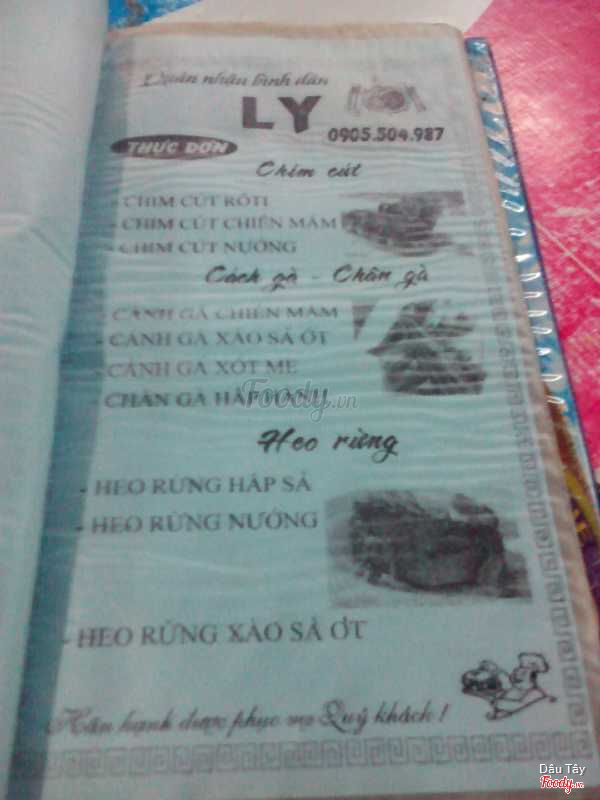 Quán nhậu bình dân
LY
0905.504.987
THỰC ĐƠN
Chim cút
- CHIM CÚT RÔTI
- CHIM CÚT CHIÊN MẮM
- CHIM CÚT NƯỚNG
Cách gà - Chân gà
- CÁNH GÀ CHIÊN MẮM
- CÁNH GÀ XÀO SẢ ỚT
- CÁNH GÀ XỐT ME
- CHÂN GÀ HẤP HÀNH
Foody.vn
Heo rừng
- HEO RỪNG HẤP SẢ
- HEO RỪNG NƯỚNG
- HEO RỪNG XÀO SẢ ỚT
Hân hạnh được phục vụ Quý khách!
Dâu Tây
Foody.vn